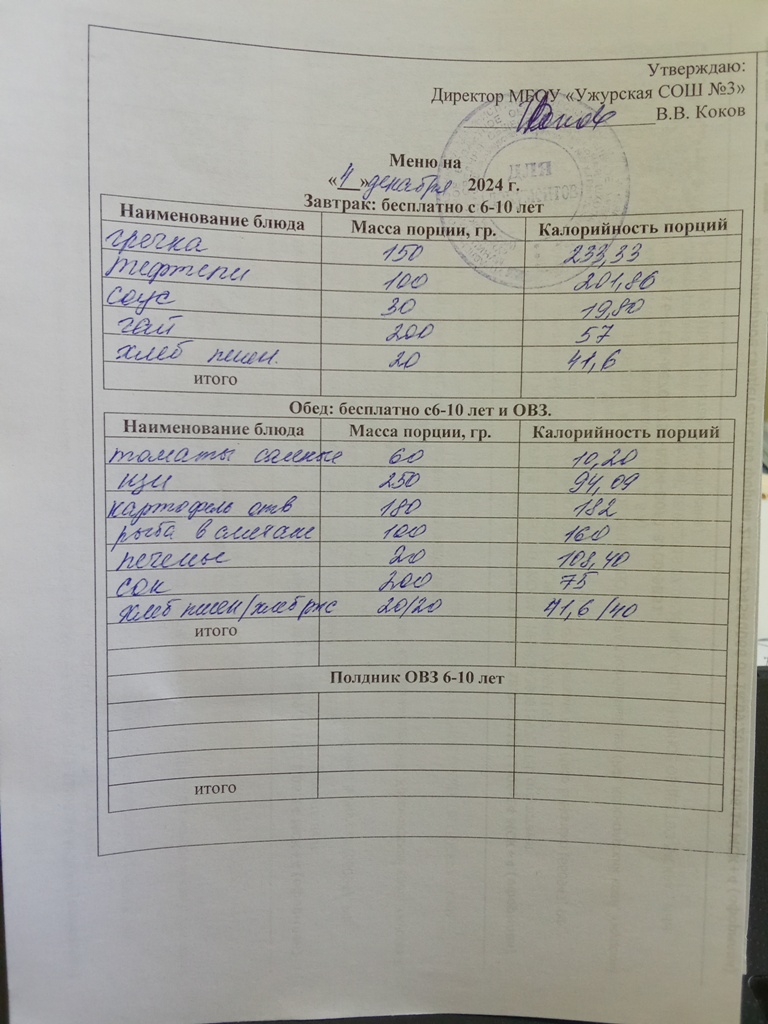 Утверждаю:
Директор МБОУ «Ужурская СОШ №3»
В.В. Коков
Меню на
«4» декабря 2024 г.
Завтрак: бесплатно с 6-10 лет
Наименование блюда Масса порции, гр. Калорийность порций
гречка 150 233,33
тефтели 100 201,86
соус 30 19,80
чай 200 57
хлеб пшен. 20 41,6
итого
Обед: бесплатно с6-10 лет и ОВЗ.
Наименование блюда Масса порции, гр. Калорийность порций
томаты соленые 60 10,20
щи 250 94,09
картофель отв 180 182
рыба в сметане 100 160
печенье 20 108,40
сок 200 75
хлеб пшен/хлеб рис 20/20 41,6/40
итого
Полдник ОВЗ 6-10 лет
итого